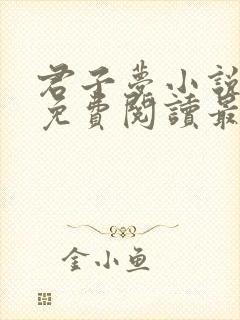 君子夢小說
免費閱讀最
金小鱼